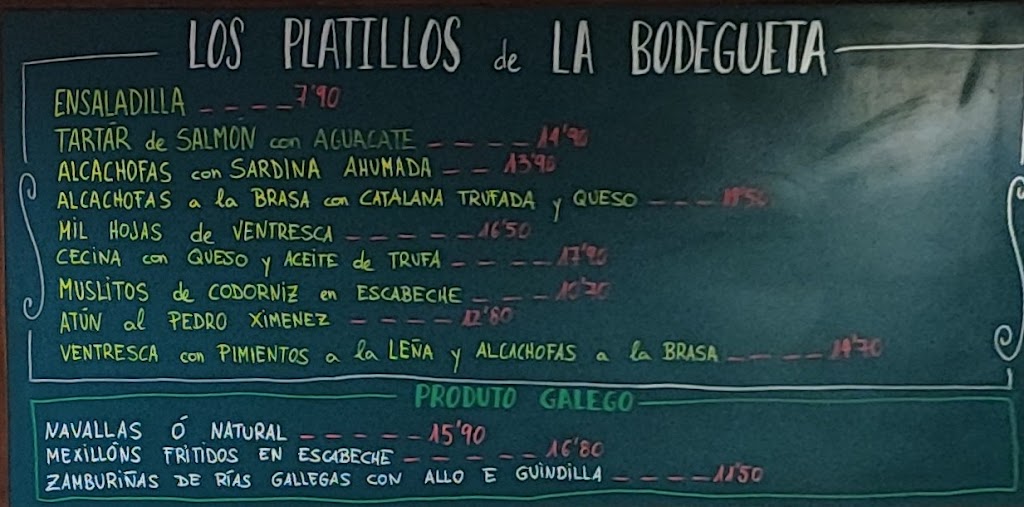 LOS PLATILLOS de LA BODEGUETA
ENSALADILLA ----7'90
TARTAR de SALMÓN con AGUACATE -----
ALCACHOFAS con SARDINA AHUMADA --13'90
ALCACHOFAS a la BRASA con CATALANA TRUFADA y QUESO ---
MIL HOJAS de VENTRESCA ------16'50
CECINA con QUESO y ACEITE de TRUFA ----17'90
MUSLITOS de CODORNIZ en ESCABECHE ---
ATÚN al PEDRO XIMENEZ ----12'80
VENTRESCA con PIMIENTOS a la LEÑA y ALCACHOFAS a la BRASA ----
PRODUTO GALEGO
NAVALLAS Ó NATURAL ------15'90
MEXILLÓNS FRITIDOS EN ESCABECHE ------16'80
ZAMBURIÑAS DE RÍAS GALLEGAS CON ALLO E GUINDILLA ----11'50